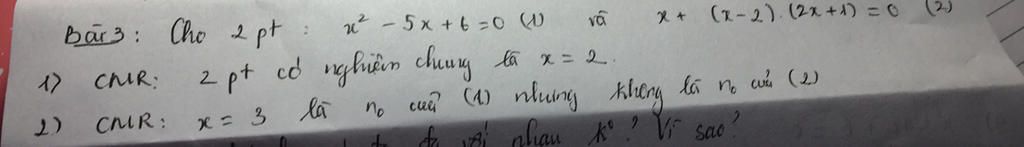 Bài 3: Cho 2 pt : x² - 5x + 6 = 0 (1) và x + (x-2).(2x+1) = 0 (2)
1) CMR: 2 pt có nghiệm chung là x = 2.
2) CMR: x = 3 là no của (1) nhưng không là no của (2)
với nhau ko? Vì sao?